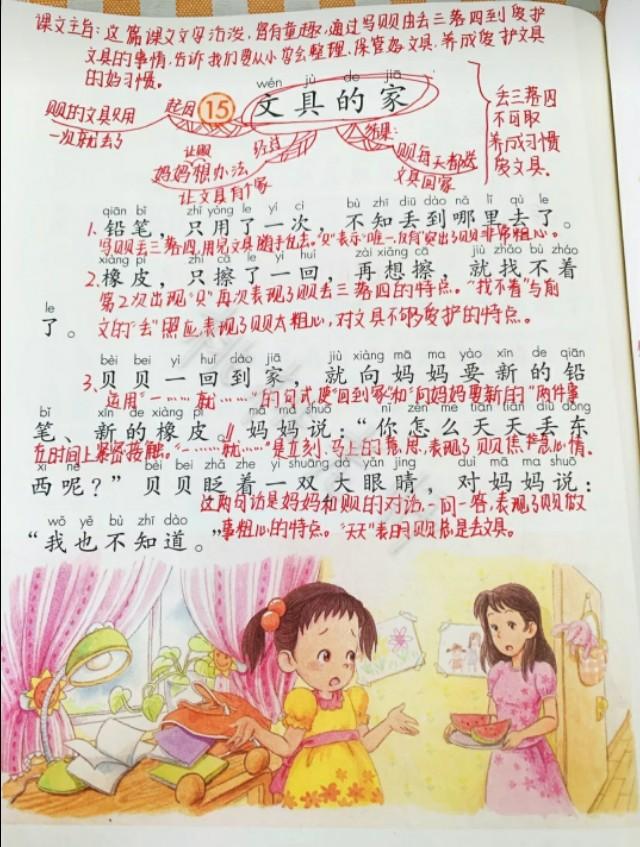 课文主旨：这篇课文文字活泼，富有童趣，通过写贝贝由丢三落四到爱护
文具的事情，告诉我们要从小学会整理、保管好文具，养成爱护文具
的好习惯。
wén jù de jiā
15 文具的家
起因
贝贝的文具只用
一次就丢了
经过
让贝贝
妈妈想办法
让文具有个家
结果：
贝贝每天都送
文具回家
丢三落四
不可取
养成习惯
爱文具.
qiān bǐ zhǐ yòng le yí cì bù zhī diū dào nǎ lǐ qù le
1. 铅笔，只用了一次，不知丢到哪里去了。
写贝贝丢三落四,用完文具随手乱丢。"只"表示"唯一,仅有"突出了贝贝非常粗心。
xiàng pí zhǐ cā le yì huí zài xiǎng cā jiù zhǎo bù zháo
2. 橡皮，只擦了一回，再想擦，就找不着
第2次出现"只"再次表现了贝贝丢三落四的特点。"找不着"与前
le
了。
文的"丢"照应,表现了贝贝太粗心，对文具不够爱护的特点。
bèi bei yì huí dào jiā jiù xiàng mā ma yào xīn de qiān
3. 贝贝一回到家，就向妈妈要新的铅
运用"一……就……"的句式,使"回到家"和"向妈妈要新的"两件事
bǐ xīn de xiàng pí mā ma shuō nǐ zěn me tiān tiān diū dōng
笔、新的橡皮。妈妈说：“你怎么天天丢东
在时间上紧密接触。"一……就……"是立刻、马上的意思,表现了贝贝焦急心情。
xi ne bèi bei zhǎ zhe yì shuāng dà yǎn jing duì mā ma shuō
西呢？”贝贝眨着一双大眼睛，对妈妈说：
这两句话是妈妈和贝贝的对话,一问一答,表现了贝贝做
wǒ yě bù zhī dào
“我也不知道。”
事粗心的特点。"天天"表明贝贝总是丢文具。